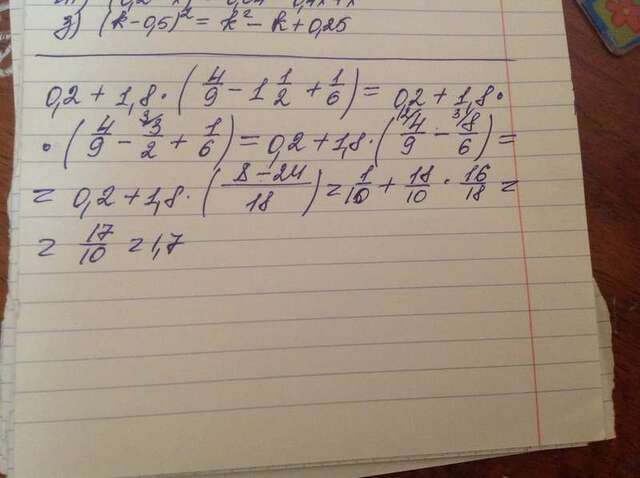 з) (k-0,5)² = k² - k + 0,25
0,2 + 1,8 · (4/9 - 1 1/2 + 1/6) = 0,2 + 1,8 ·
· (4/9 - 3/2 + 1/6) = 0,2 + 1,8 · (4/9 - 8/6) =
= 0,2 + 1,8 · (8-24/18) = 1/10 + 18/10 · 16/18 =
= 17/10 = 1,7